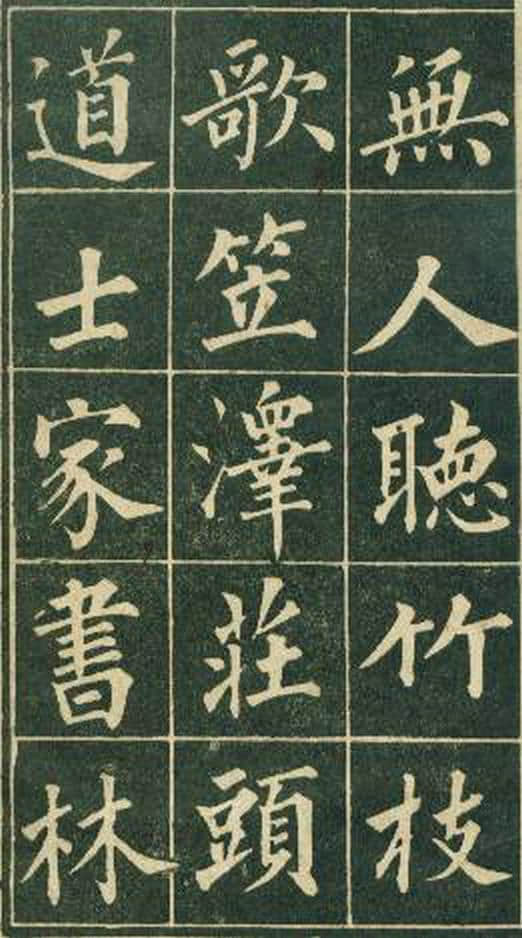 無人聴竹枝
歌笠澤荘頭
道士家書林